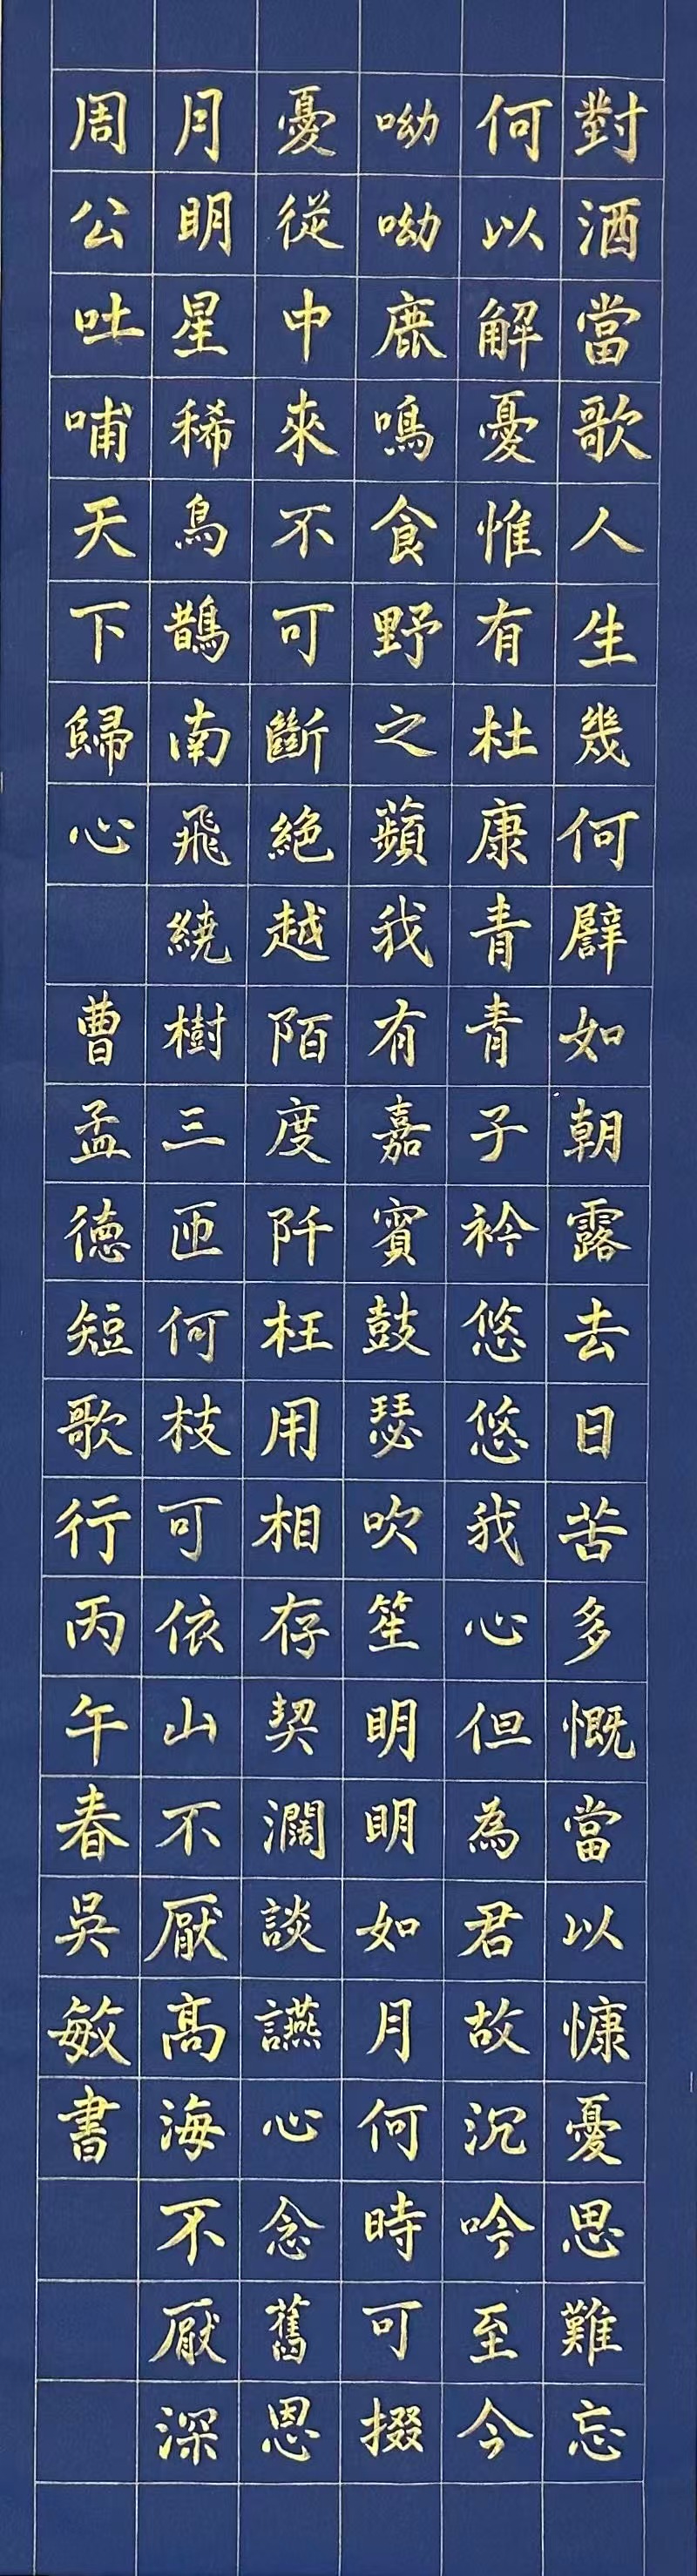 對酒當歌人生幾何譬如朝露去日苦多慨當以慷憂思難忘
何以解憂惟有杜康青青子衿悠悠我心但為君故沉吟至今
呦呦鹿鳴食野之蘋我有嘉賓鼓瑟吹笙明明如月何時可掇
憂從中來不可斷絕越陌度阡枉用相存契濶談讌心念舊恩
月明星稀烏鵲南飛繞樹三匝何枝可依山不厭高海不厭深
周公吐哺天下歸心 曹孟德短歌行丙午春吳敏書